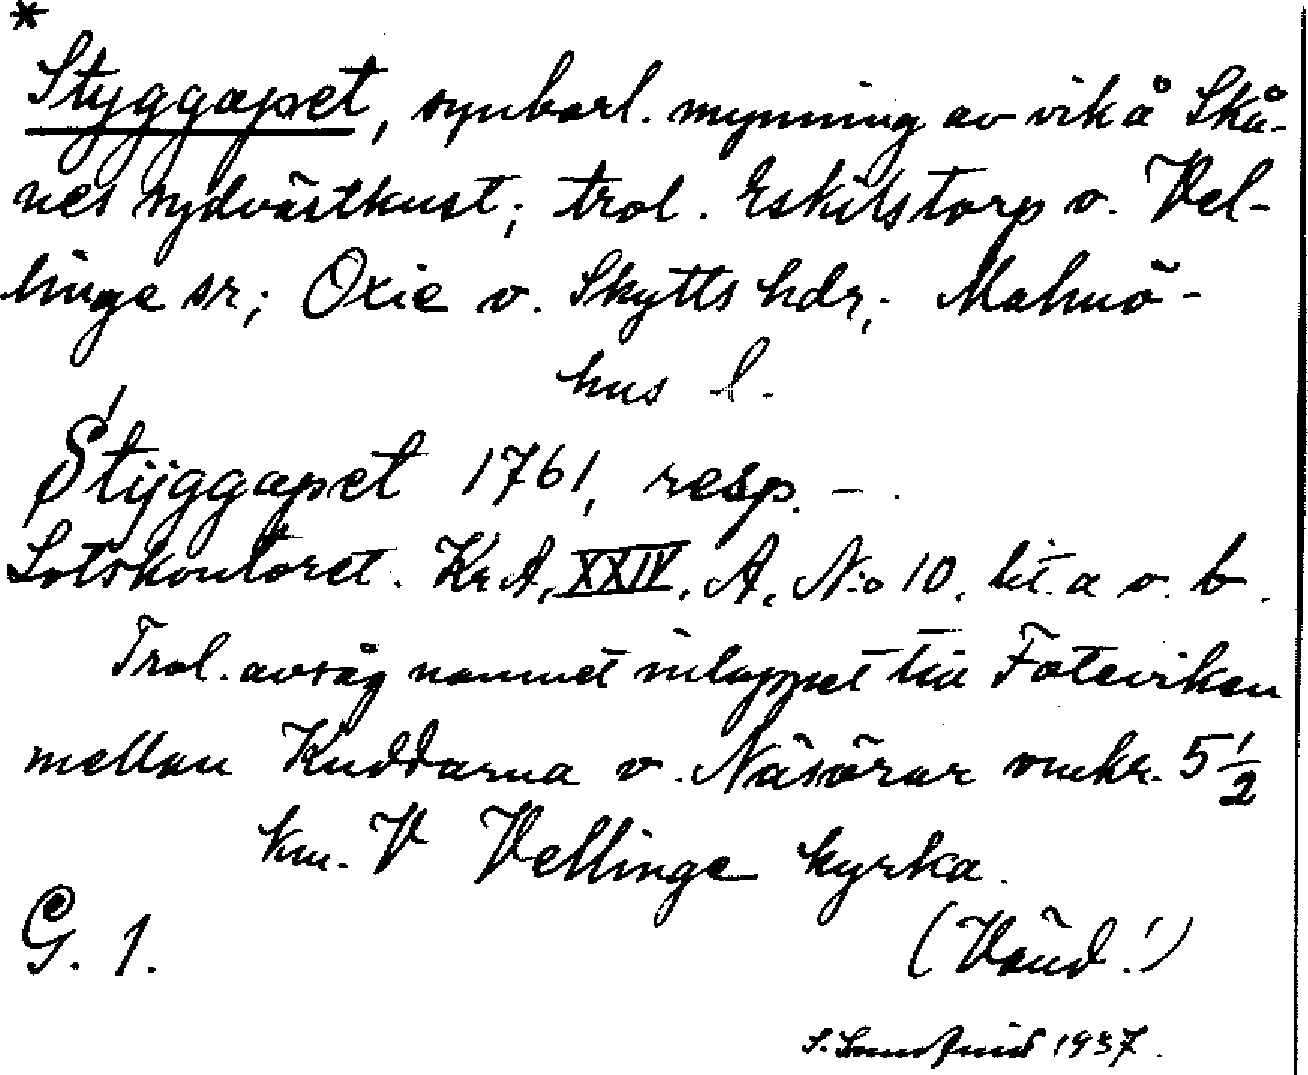 *
Styggapet, synbarl. mynning av vik å Skå-
nes sydvästkust; trol. Eskilstorp o. Vel-
linge sr; Oxie o. Skytts hdr; Malmö-
hus l.
Stÿggapet 1761, resp. – .
Lotskontoret. Kr.A. XXIV. A. N:o 10. lit. a o. b.
Trol. avsåg namnet inloppet till Foteviken
mellan Kuddarna o. Näsörar omkr. 5 1/2
km. V Vellinge kyrka.
G. 1.
(Vänd!)
S. 1937.